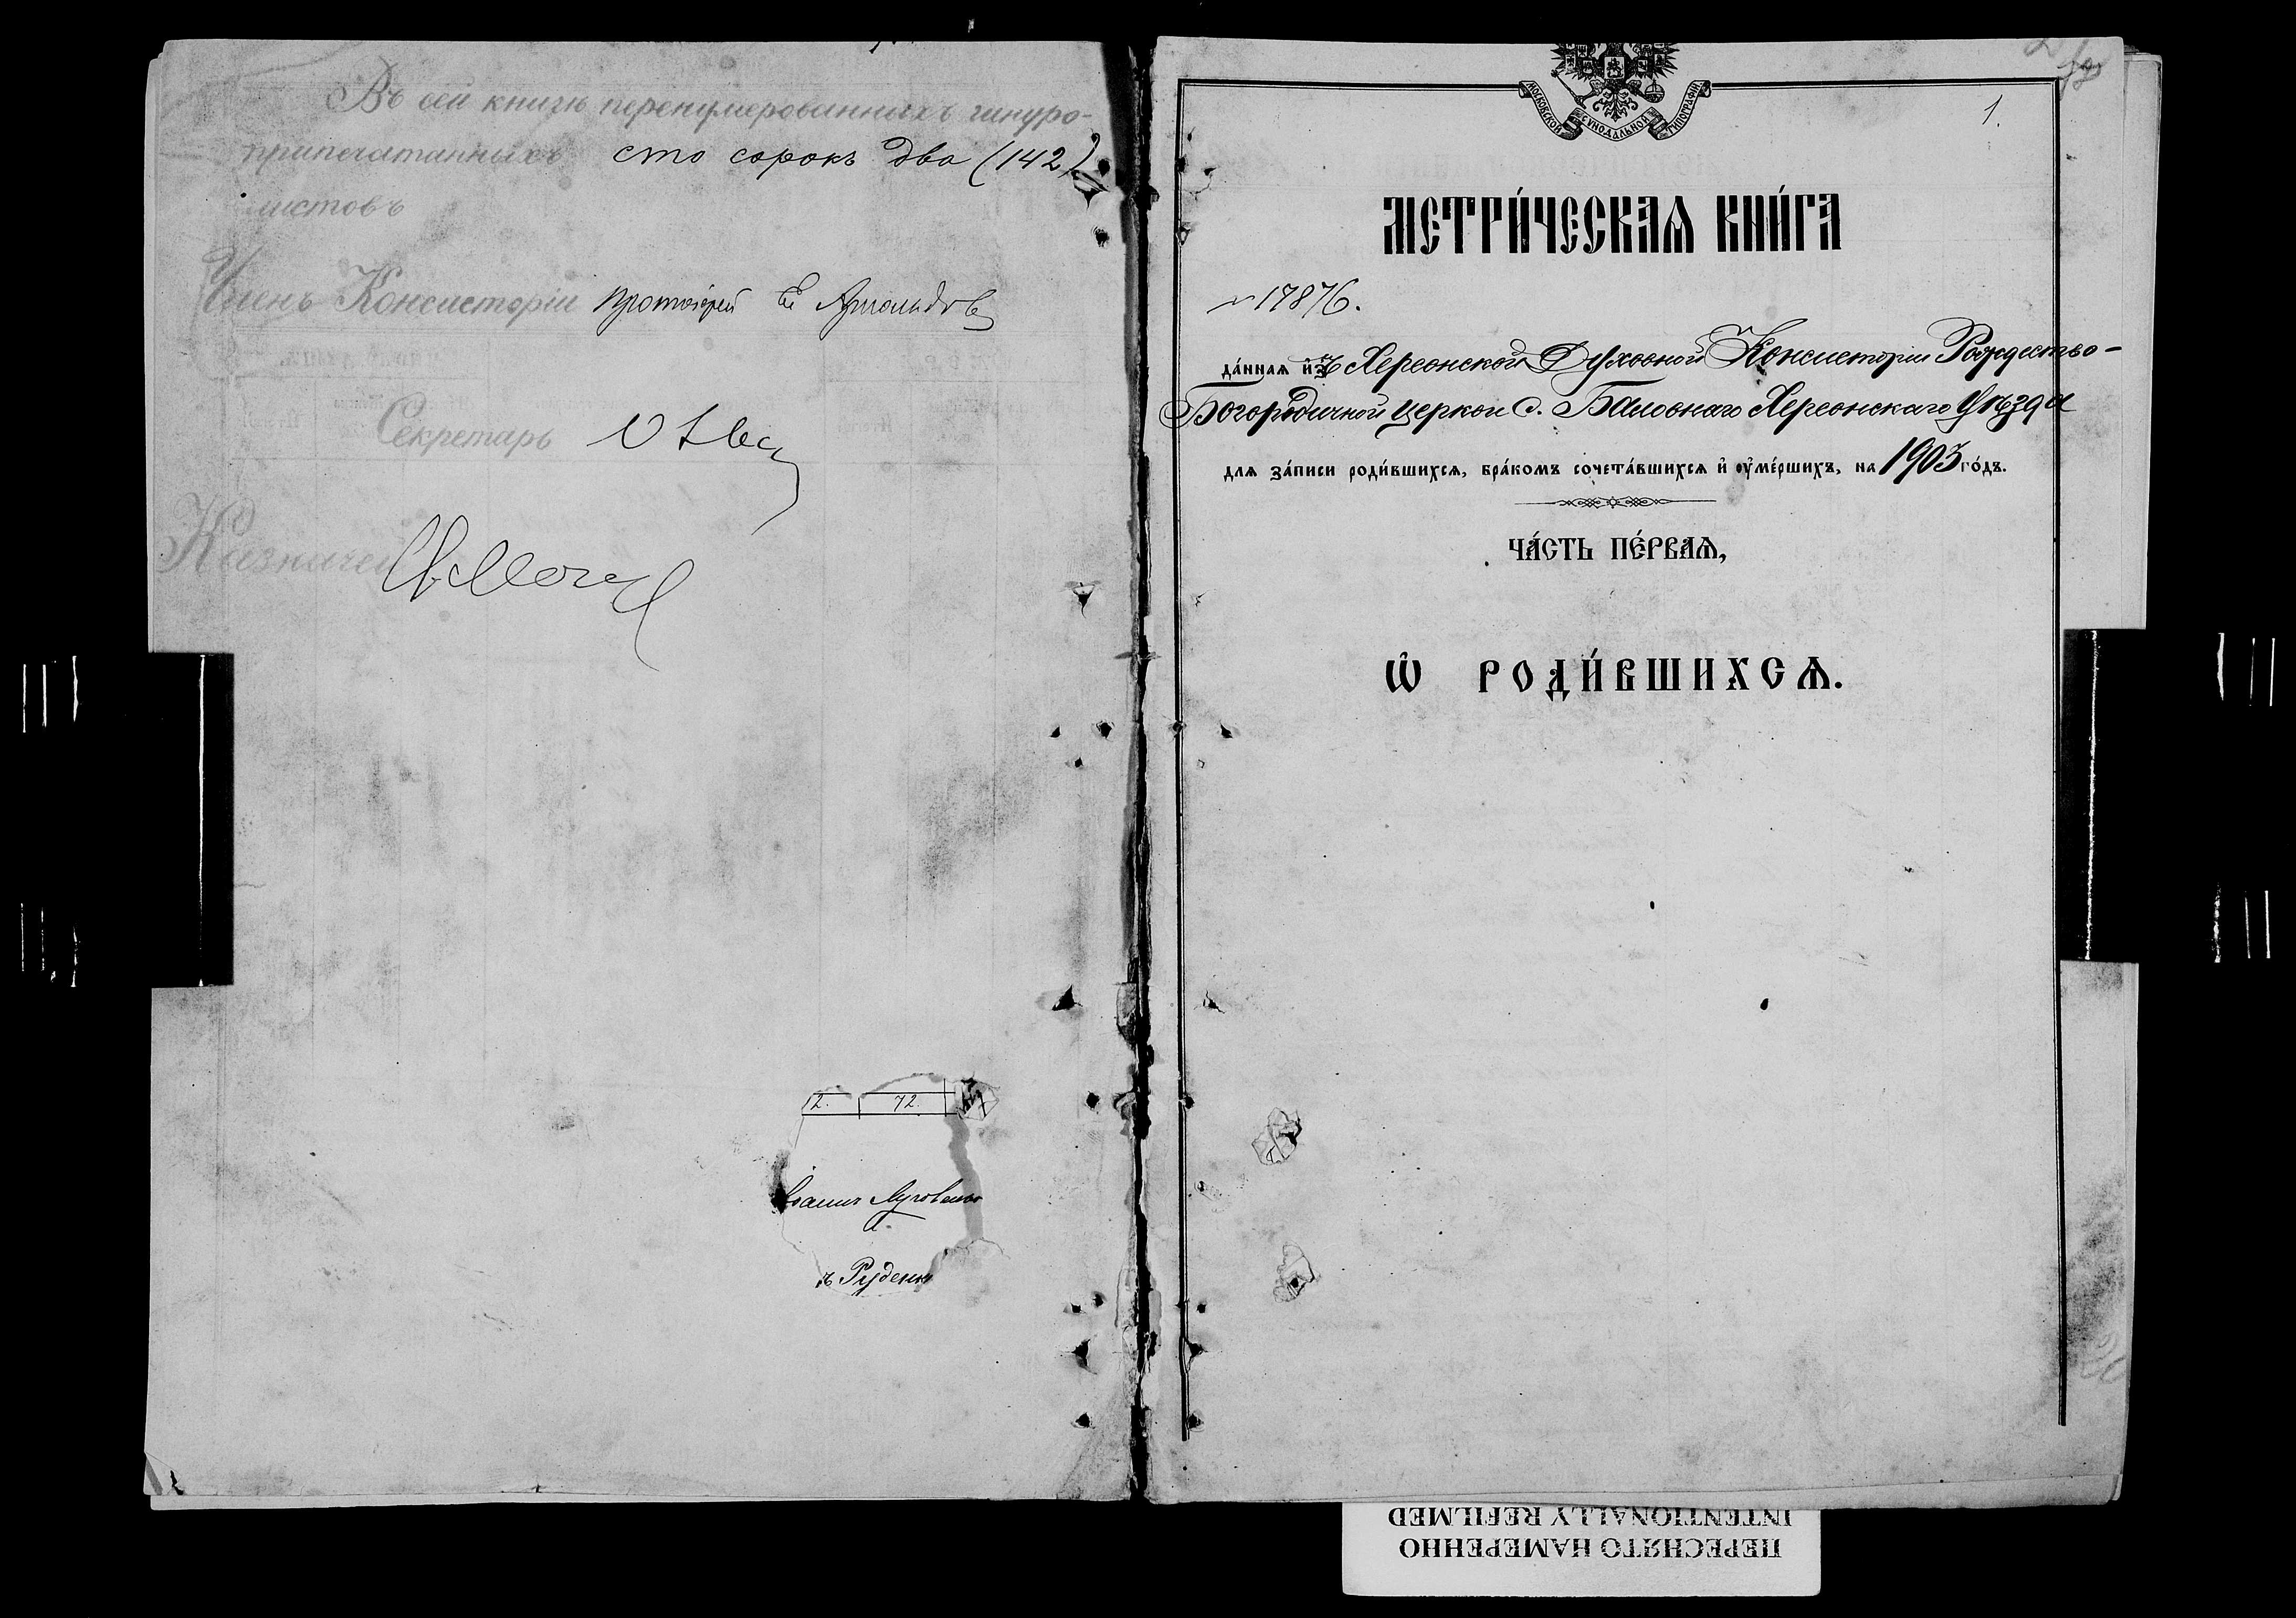 Въ сей книгѣ перенумерованныхъ шнуро-
припечатанныхъ сто сорокъ два (142)
листовъ
Членъ Консисторіи Протоіерей
Секретарь
Казначей
12. 72.
Іоаннъ
ъ Руденк
1.
МОСКОВСКОЙ СѴНОДАЛЬНОЙ ТИПОГРАФІИ
МЕТРИ́ЧЕСКАѦ КНИ́ГА
№ 17876.
да́нная и҆зъ Херсонской Духовной Консисторіи Рождество-
Богородичной церкви с. Баловнаго Херсонскаго уѣзда
для за́писи роди́вшихсѧ, бра́комъ сочета́вшихсѧ и҆ ѹ҆ме́ршихъ, на 1903 го́дъ.
ЧА́СТЬ ПЕ́РВАѦ,
Ѡ҆ РОДИ́ВШИХСѦ.
ПЕРЕСНЯТО НАМЕРЕННО
INTENTIONALLY REFILMED